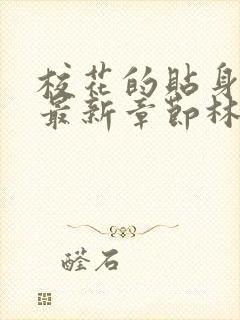 校花的贴身
最新章节林
醛石